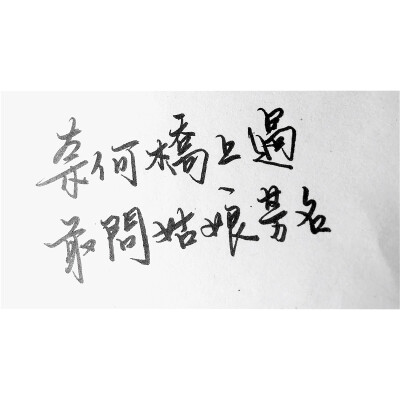 奈何橋上過
敢問姑娘芳名